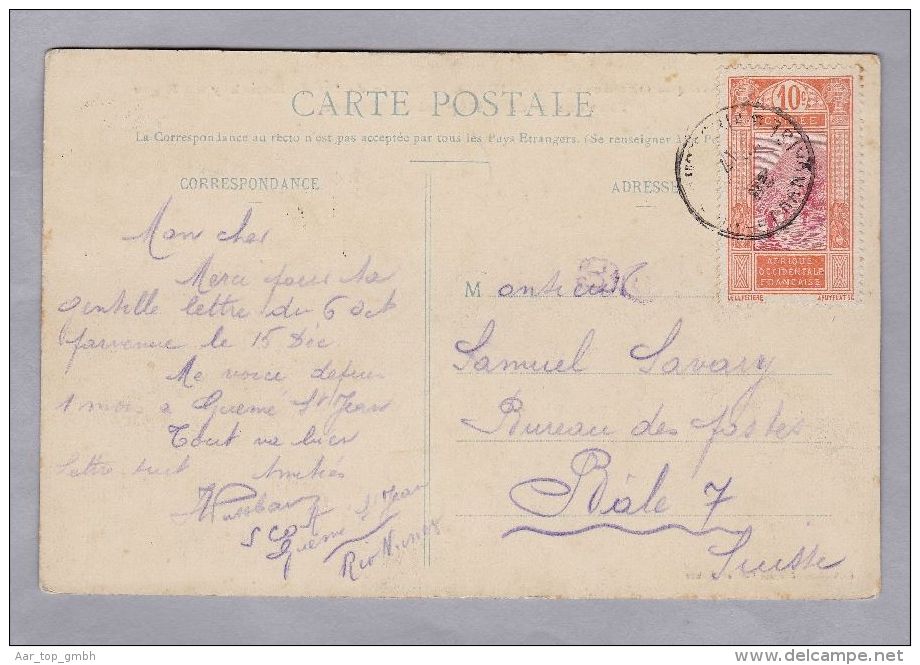 CARTE POSTALE
La Correspondance au recto n'est pas acceptée par tous les Pays Etrangers. (Se renseigner à
CORRESPONDANCE
ADRESSE
10c
GUINÉE
AFRIQUE
OCCIDENTALE
FRANÇAISE
Mon cher
Merci pour ta
gentille lettre du 6 Oct
parvenue le 15 Déc.
Me voici depuis
1 mois a Guémé St Jean
Tout va bien
Lettre suit Amitiés
SCOA
Guémé St Jean
Rio Nunez
Monsieur
Samuel Savary
Bureau des postes
Bâle 7
Suisse
Aar_top_gmbh
www.delcampe.net